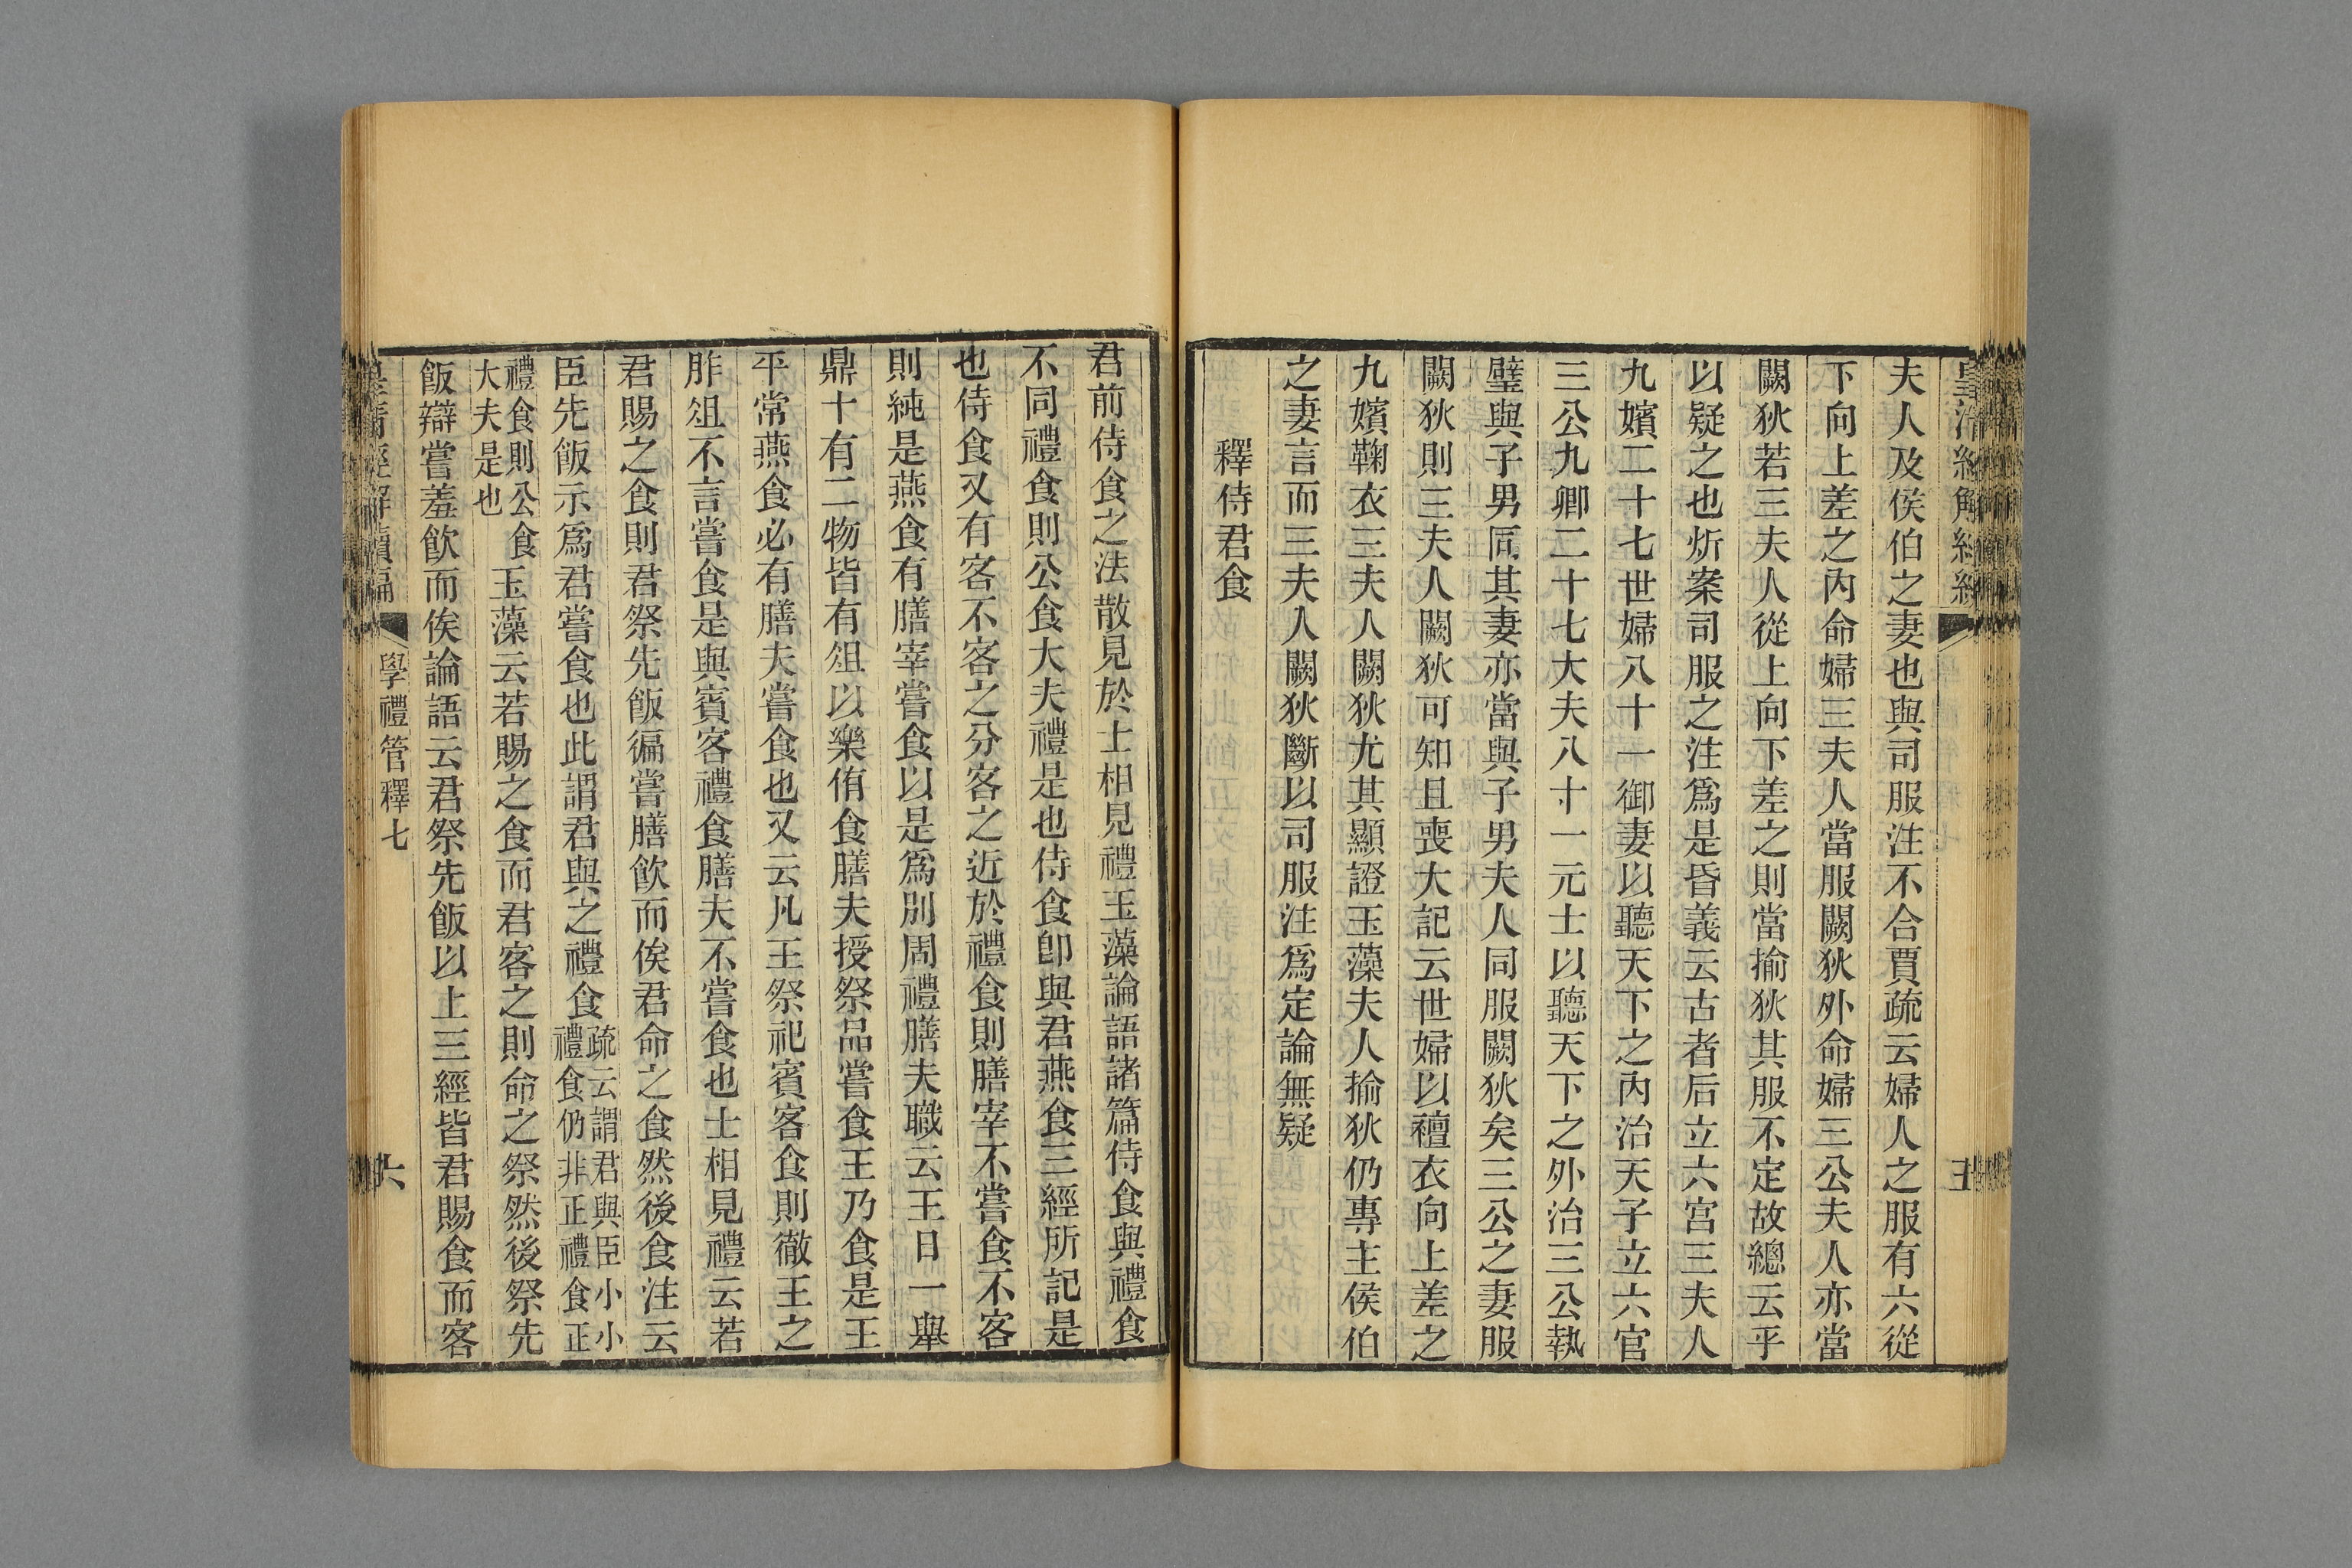 夫人及侯伯之妻也與司服注不合賈疏云婦人之服有六從
下向上差之內命婦三夫人當服闕狄外命婦三公夫人亦當
闕狄若三夫人從上向下差之則當揄狄其服不定故總云乎
以疑之也炘案司服之注爲是昏義云古者后立六宮三夫人
九嬪二十七世婦八十一御妻以聽天下之內治天子立六官
三公九卿二十七大夫八十一元士以聽天下之外治三公執
璧與子男同其妻亦當與子男夫人同服闕狄矣三公之妻服
闕狄則三夫人闕狄可知且喪大記云世婦以襢衣向上差之
九嬪鞠衣三夫人闕狄尤其顯證玉藻夫人揄狄仍專主侯伯
之妻言而三夫人闕狄斷以司服注爲定論無疑
釋侍君食
君前侍食之法散見於士相見禮玉藻論語諸篇侍食與禮食
不同禮食則公食大夫禮是也侍食卽與君燕食三經所記是
也侍食又有客不客之分客之近於禮食則膳宰不嘗食不客
則純是燕食有膳宰嘗食以是爲別周禮膳夫職云王日一舉
鼎十有二物皆有俎以樂侑食膳夫授祭品嘗食王乃食是王
平常燕食必有膳夫嘗食也又云凡王祭祀賓客食則徹王之
胙俎不言嘗食是與賓客禮食膳夫不嘗食也士相見禮云若
君賜之食則君祭先飯徧嘗膳飮而俟君命之食然後食注云
臣先飯示爲君嘗食也此謂君與之禮食疏云謂君與臣小小
禮食仍非正禮食正
禮食則公食
大夫是也玉藻云若賜之食而君客之則命之祭然後祭先
飯辯嘗羞飮而俟論語云君祭先飯以上三經皆君賜食而客
學禮管釋七
六